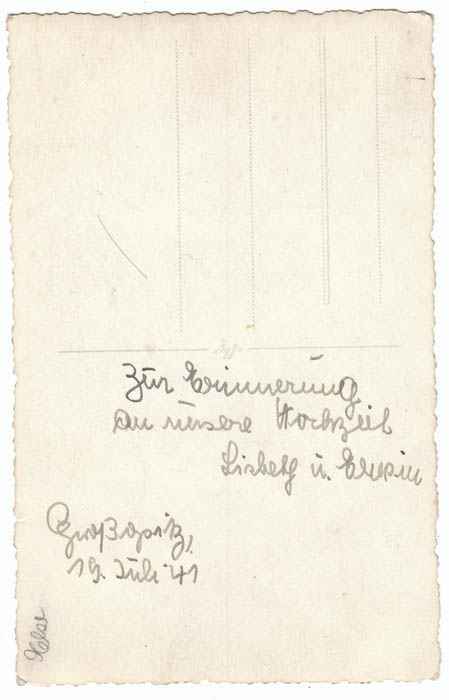 Zur Erinnerung
an unsere Hochzeit
Lisbeth u. Erwin
Großopitz,
19. Juli 41
Else